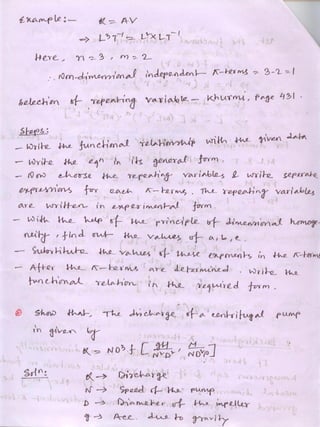 Example:- Q = AV
⇒ L³T⁻¹ = L²×LT⁻¹
Here, n = 3, m = 2
∴ Non-dimensional independent π-terms = 3-2 = 1
Selection of repeating variable - Khurmi, Page 431.
Steps:
- Write the functional relationship with the given data
- Write the eqn in its general form.
- Now choose the repeating variables & write seperate
expressions for each π-terms. The repeating variables
are written in exponential form.
- With the help of the principle of dimensional homoge-
neity, find out the values of a, b, c.
- Substitute the values of these exponents in the π-terms
- After the π-terms are determined, write the
functional relation in the required form.
Show that, The discharge of a centrifugal pump
in given by
Q = ND³ f [ gH/N²D², μ/ND²ρ ]
Soln: Q → Discharge
N → Speed of the pump
D → Diameter of the impeller
g → Acc. due to gravity